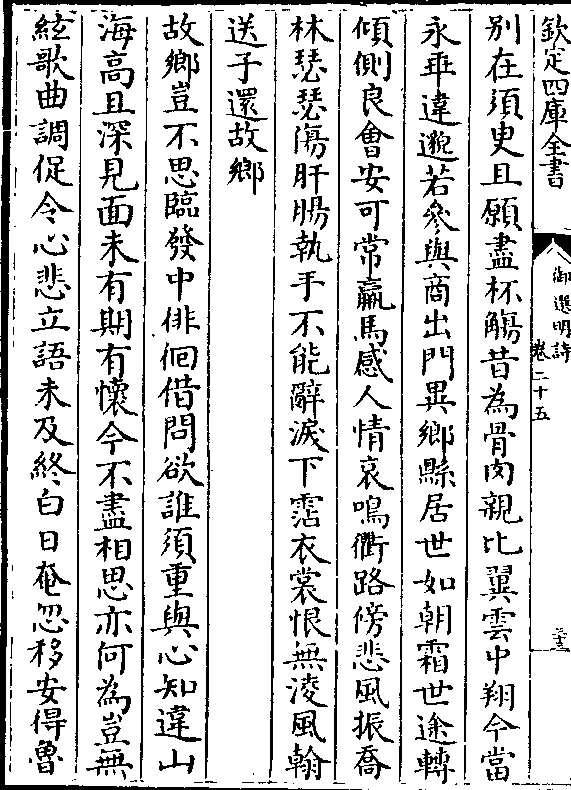 欽定四庫全書
御選明詩
卷二十五
三十三
別在須臾且願盡杯觴昔為骨肉親比翼雲中翔今當
永乖違邈若參與商出門異鄉縣居世如朝霜世途轉
傾側良會安可常羸馬感人情哀鳴衢路傍悲風振喬
林瑟瑟傷肝腸執手不能辭淚下霑衣裳恨無淩風翰
送子還故鄉
故鄉豈不思臨發中徘徊借問欲誰須重與心知違山
海高且深見面未有期有懷今不盡相思亦何為豈無
絃歌曲調促令心悲立語未及終白日奄忽移安得魯